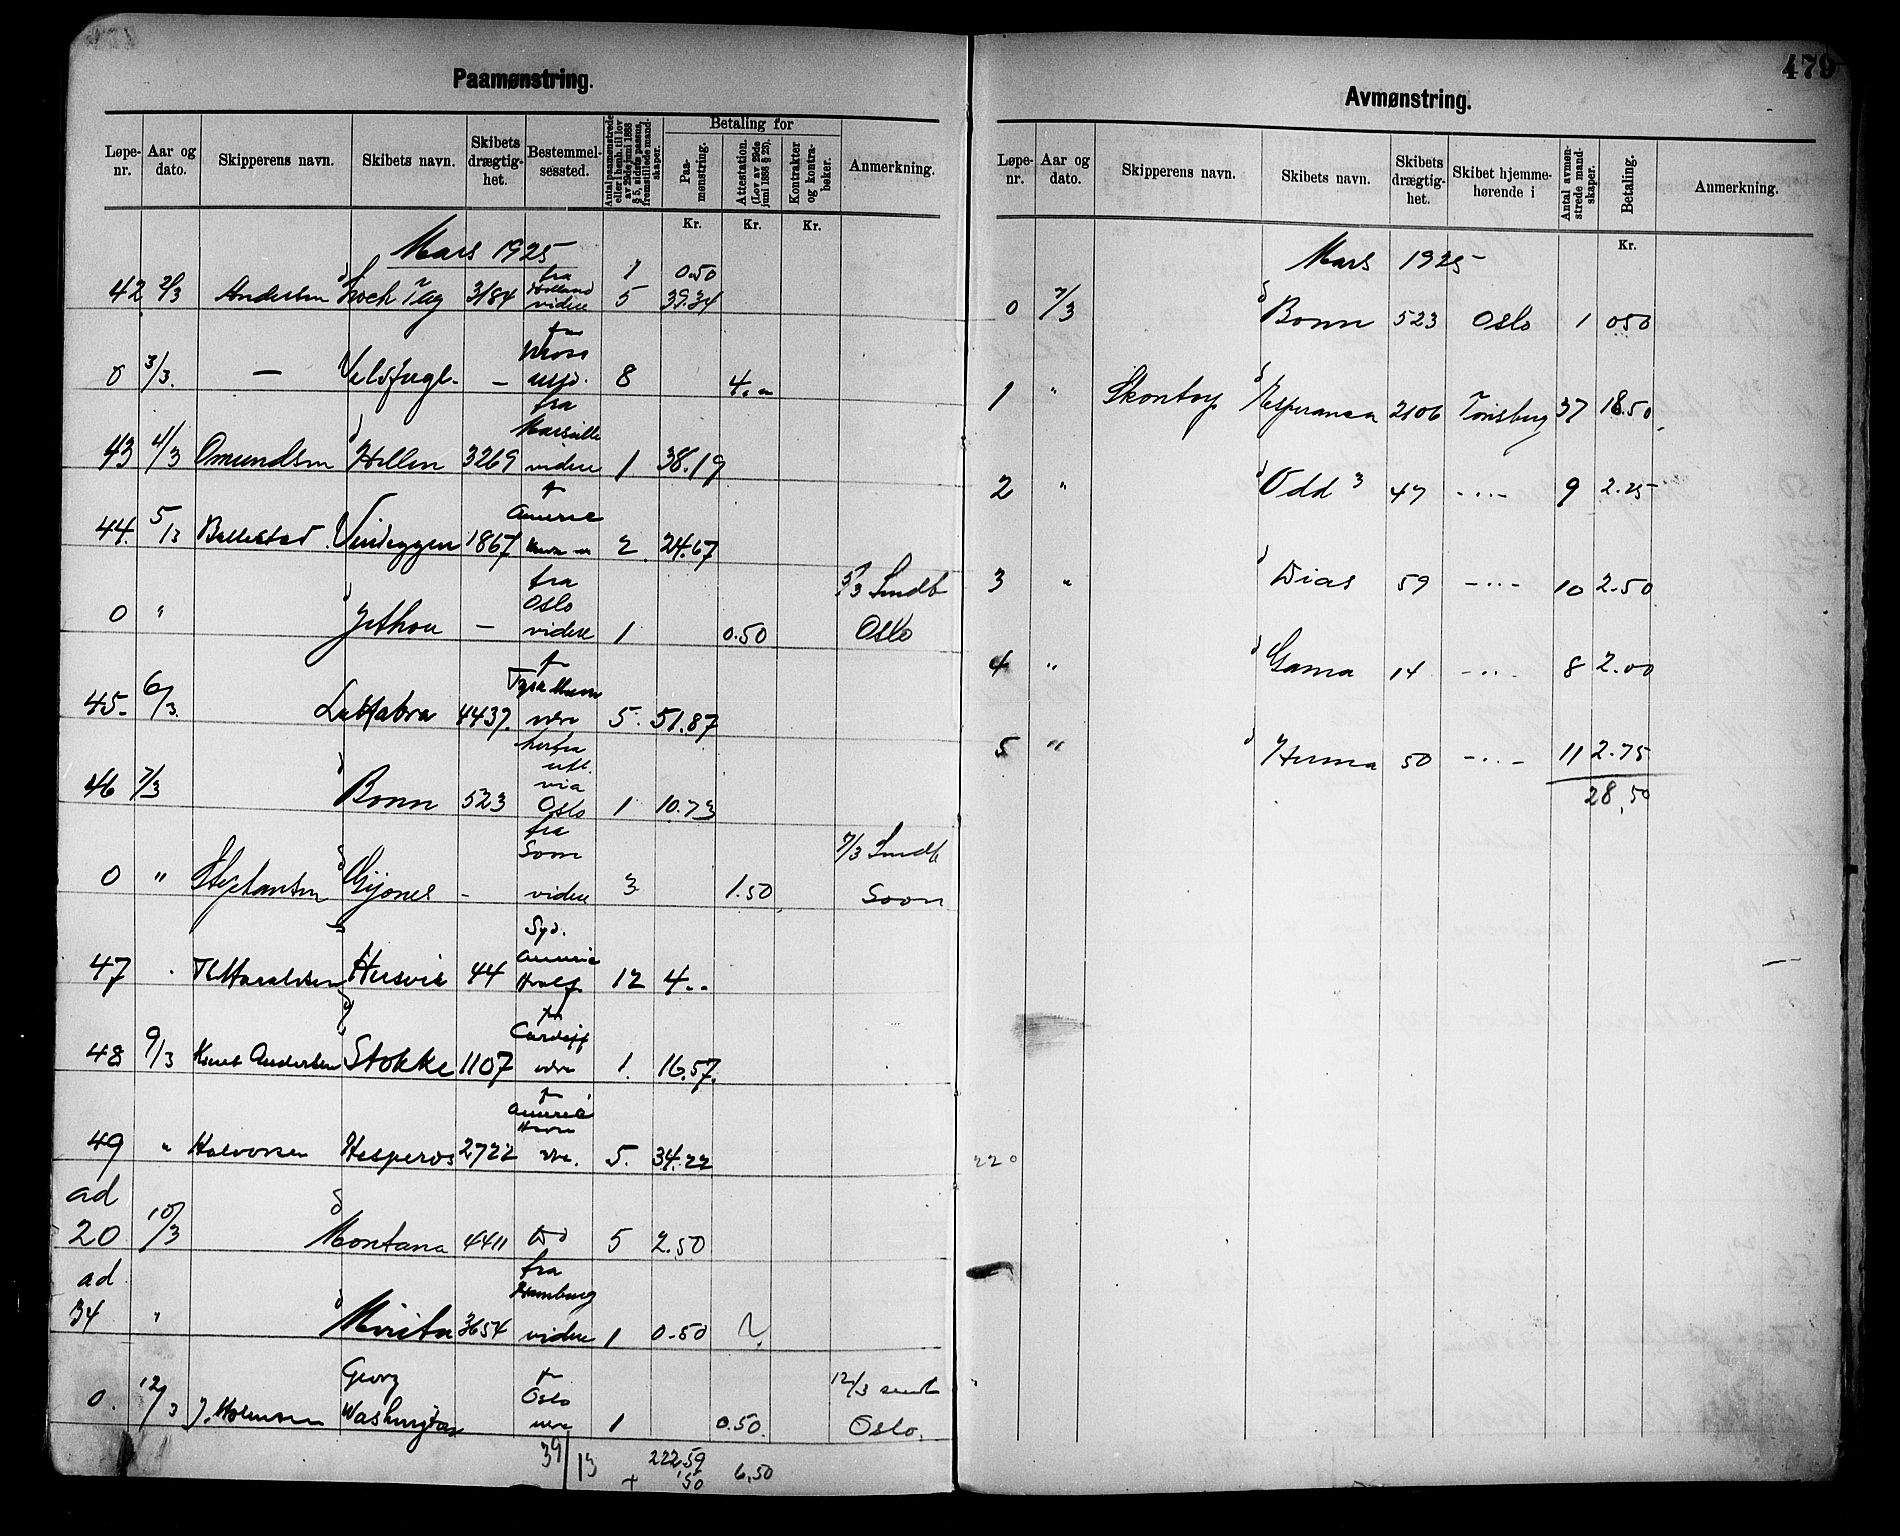 479
Paamønstring.
Løpe-nr. Aar og dato. Skipperens navn. Skibets navn. Skibets drægtig-het. Bestemmel-sessted. Antal paamønstrede eller i henh. til lov av 29de juni 1888 § 5, sidste passus, fremstillede mand-skaper. Betaling for Paa-mønstring. Attestation. (Lov av 29de juni 1888 § 25). Kontrakter og kontra-bøker. Anmerkning.
Kr. Kr. Kr.
Mars 1925
1 0.50
42 2/3 Andersen 3184 fra Holland videre 5 39.34
0 3/3. — — fra Moss 8 4.„
43 4/3 Omundsen Hellen 3269 fra Marseille videre 1 38.19
44. 5/3 Vindeggen 1867 2 24.67
0 " Jethou — fra Oslo videre 1 0.50 5/3 Sendt Oslo
45- 6/3. 4437. 5. 51.87
46 7/3 Bonn 523 herfra utl. via Oslo 1 10.73
0 " Stephansen Gijones - fra Soon videre 3 1.50 7/3 Sendt Soon
47 Th Haraldsen Husvik 44 Syd. Hvalf. 12 4..
48 9/3 Knut Andersen Stokke 1107 fra Cardiff 1. 16.57.
49 " Halvorsen Hesperos 2722 5. 34.22
ad 20 10/3 Montana 4411 5 2.50
ad 34 " 3654 fra Hamburg videre 1 0.50
0. 12/3 J. Holmsen Georg Washington Oslo 1 0.50. 12/3 sendt Oslo.
39/13 222,59 6,50
+ ,50
Avmønstring.
Løpe-nr. Aar og dato. Skipperens navn. Skibets navn. Skibets drægtig-het. Skibet hjemme-hørende i Antal avmøn-strede mand-skaper. Betaling. Anmerkning.
Kr.
Mars 1925
0 7/3 Bonn 523 Oslo 1 0.50
1 " Skontorp Esperansa 2106 Tønsberg 37 18.50
2 " Odd 3 47 -"- 9 2.25
3 " Dias 59 -"- 10 2.50
4 " Gama 14 -"- 8 2.00
5 " Herma 50 -"- 11 2.75
28,50
220